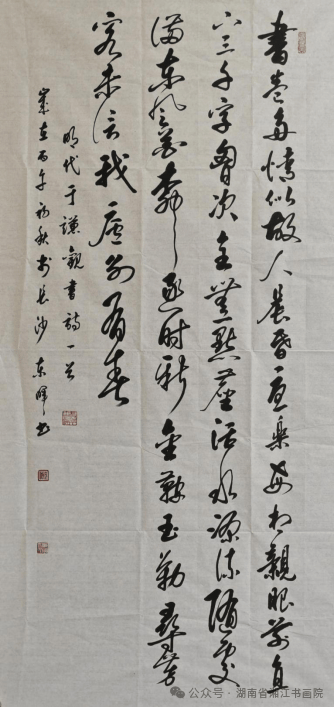 書卷多情似故人晨昏憂樂每相親眼前直
下三千字胸次全無一點塵活水源流随處
滿東風花柳逐時新金鞍玉勒尋芳
客未信我廬别有春
明代于謙觀書詩一首
歲在丙午初秋於長沙 東暉书
公众号 · 湖南省湘江书画院